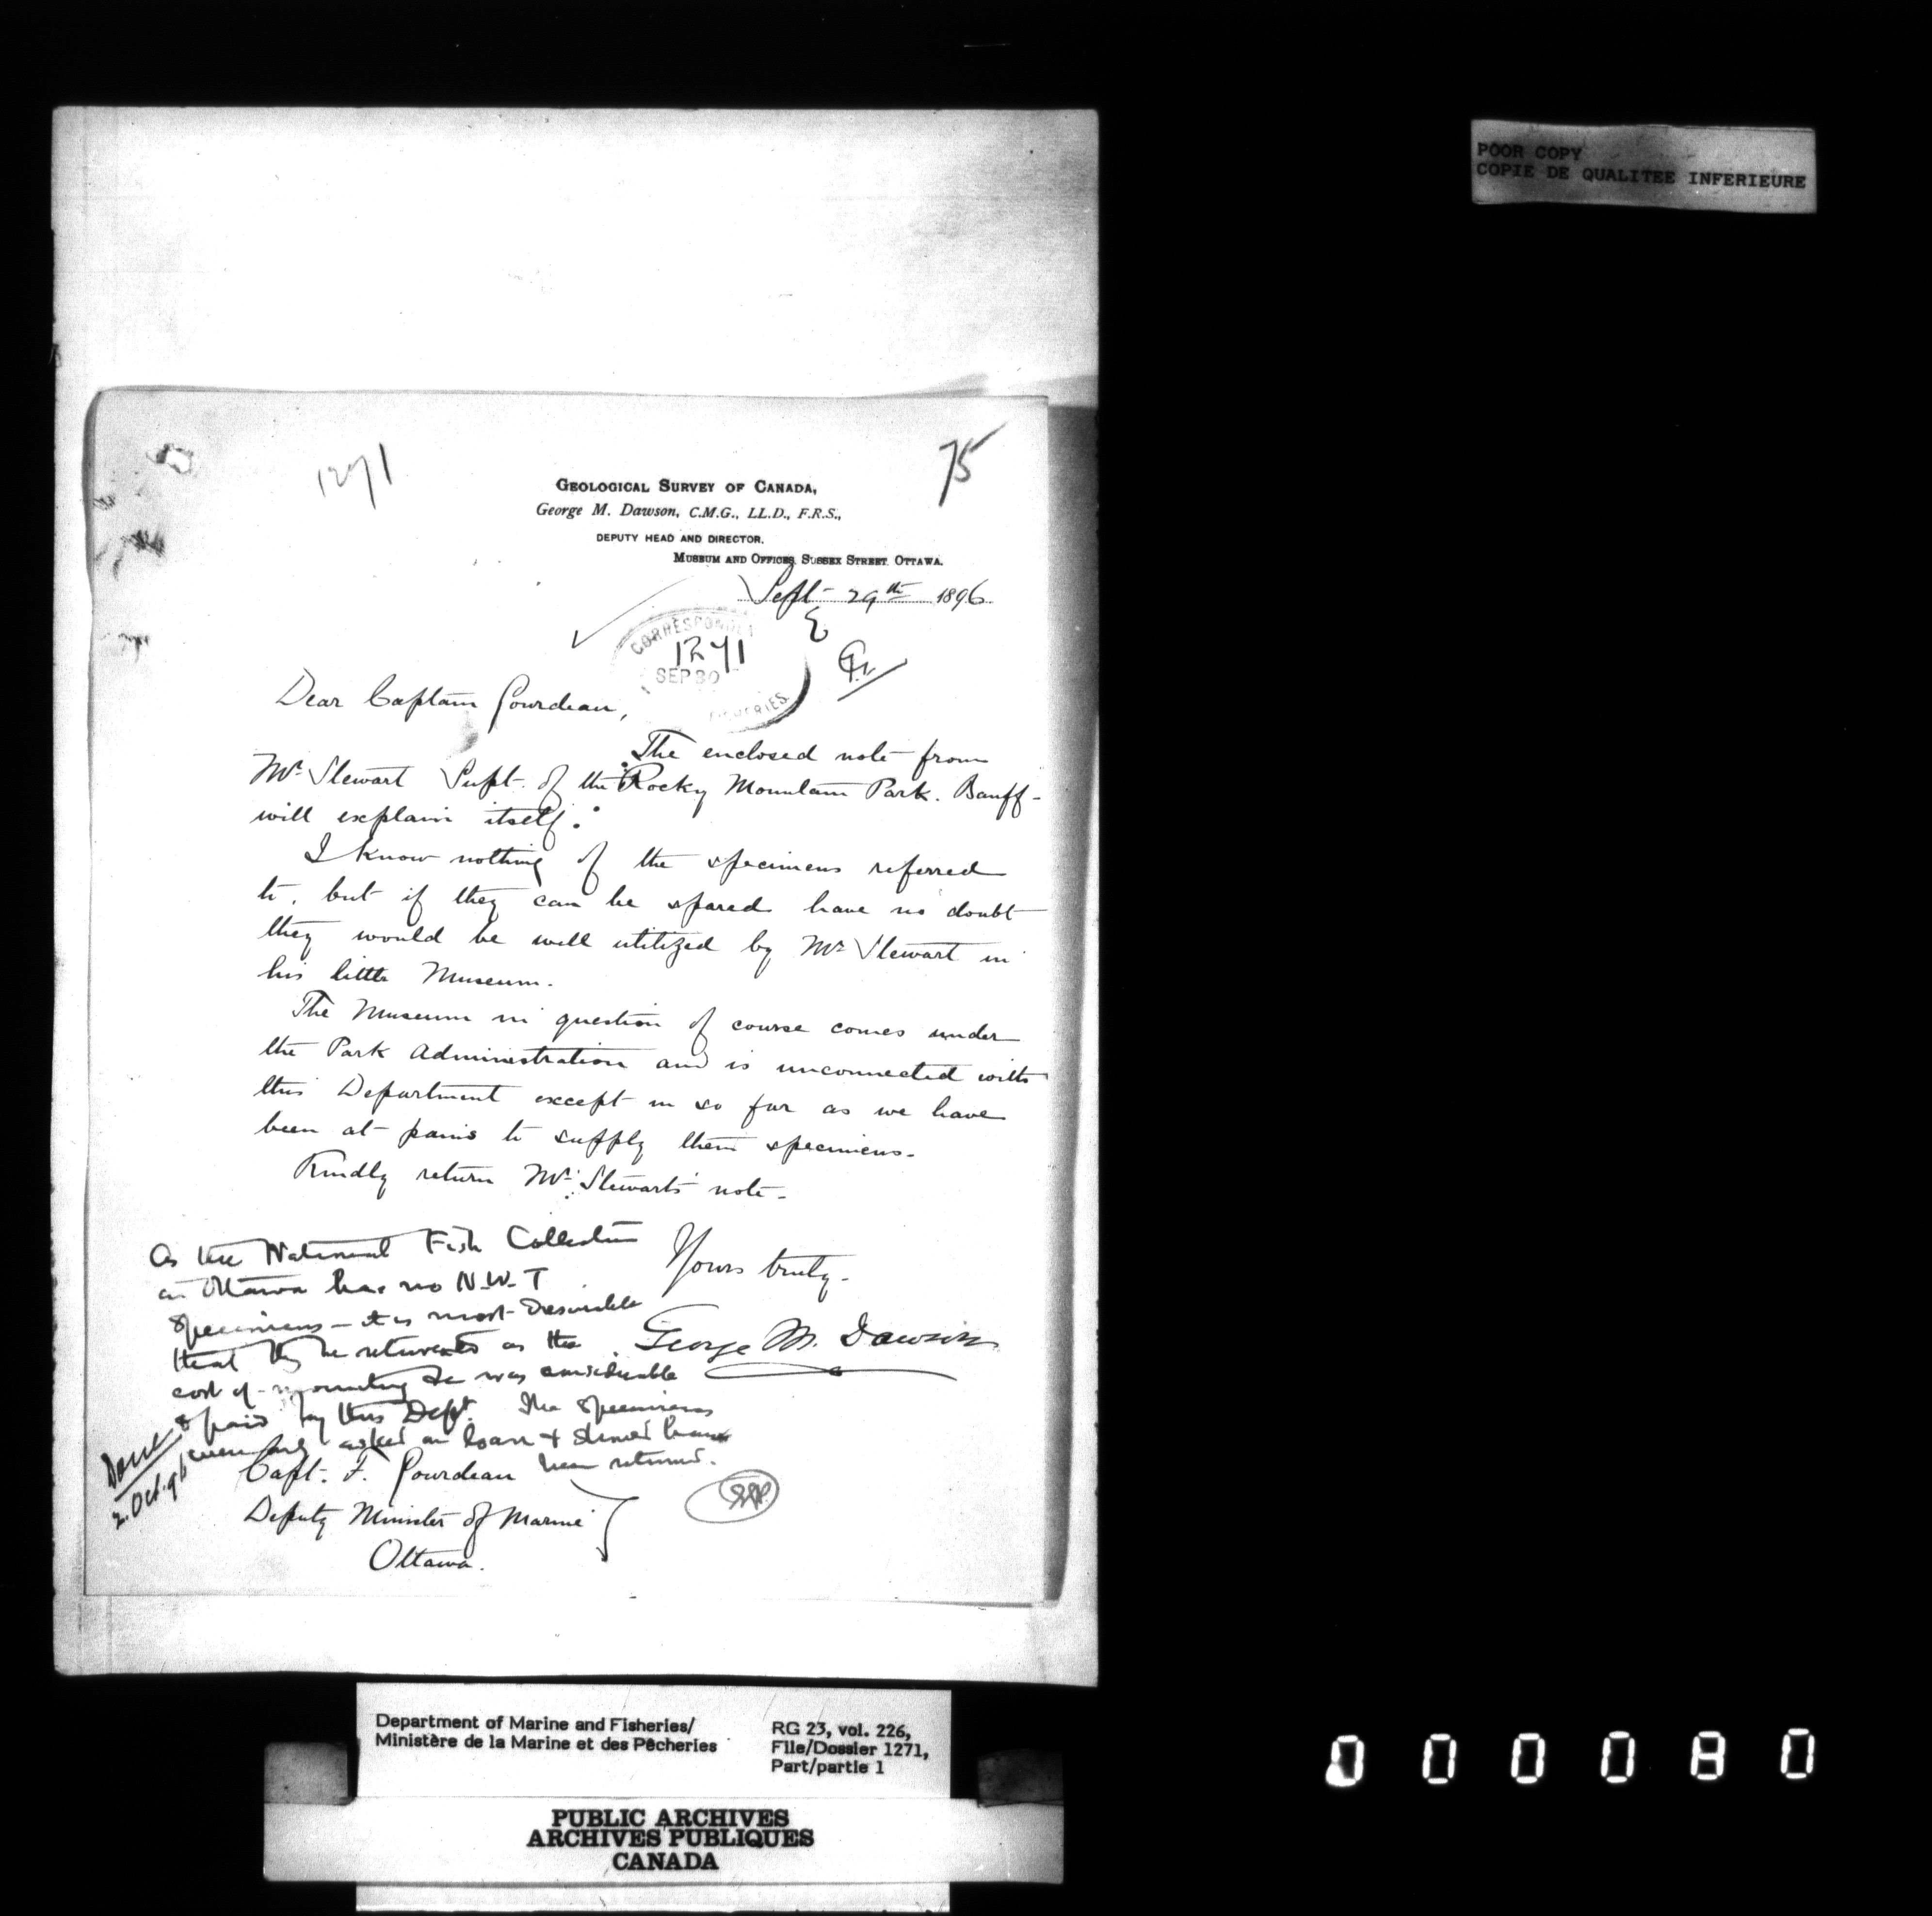 POOR COPY
COPIE DE QUALITEE INFERIEURE
1271
75
GEOLOGICAL SURVEY OF CANADA,
George M. Dawson, C.M.G., LL.D., F.R.S.,
DEPUTY HEAD AND DIRECTOR.
MUSEUM AND OFFICES, SUSSEX STREET, OTTAWA.
Sept- 29th 1896
1271
SEP 30
FISHERIES.
Dear Captain Gourdeau,
The enclosed note from
Mr. Stewart Supt. of the Rocky Mountain Park. Banff-
will explain itself.
I know nothing of the specimens referred
to, but if they can be spared have no doubt
they would be well utilized by Mr Stewart in
his little Museum.
The Museum in question of course comes under
the Park Administration and is unconnected with
this Department except in so far as we have
been at pains to supply them specimens.
Kindly return Mr. Stewart's note-
Yours truly-
George M. Dawson
As the National Fish Collection
in Ottawa has no N.W.T
specimens - it is most desirable
that they be returned as the
cost of mounting was considerable
& paid by this Dept. The specimens
were only asked on loan & should have
been returned.
Done
2. Oct. 96
Capt. F. Gourdeau
Deputy Minister of Marine
Ottawa.
Department of Marine and Fisheries/
Ministère de la Marine et des Pêcheries
RG 23, vol. 226,
File/Dossier 1271,
Part/partie 1
PUBLIC ARCHIVES
ARCHIVES PUBLIQUES
CANADA
000080